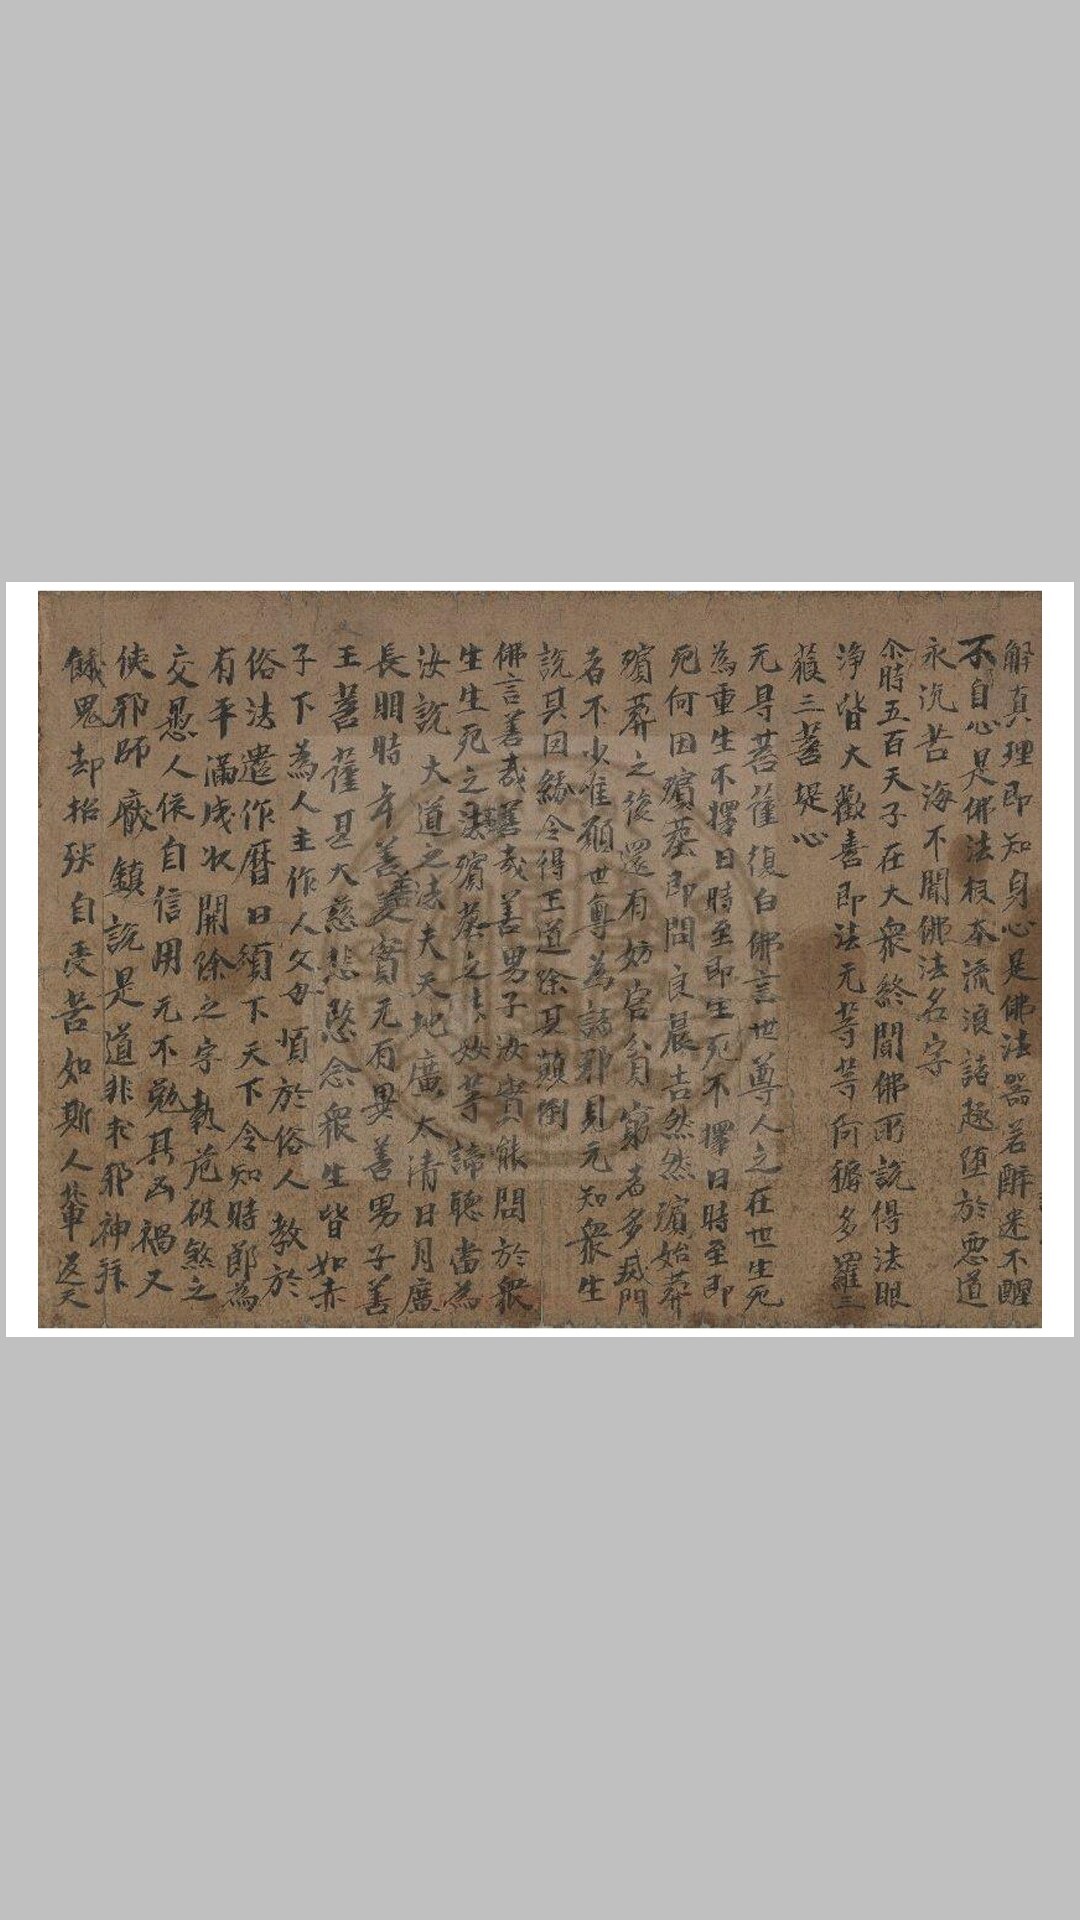 解真理即知身心是佛法器若醉迷不醒
不自心是佛法根本流浪諸趣堕於悪道
永沉苦海不聞佛法名字
尒時五百天子在大衆終聞佛所說得法眼
浄皆大歡喜即法元等等何耨多羅三
藐三菩提心
元导菩薩復白佛言世尊人之在世生死
為重生不擇日時至即生死不擇日時至即
死何因殯葬即問良晨吉然然殯始葬
殯葬之後還有妨害貧窮者多烕門
者不少唯願世尊為諸邪見元知衆生
說其因緣令得王道除其顛倒
佛言善哉善哉善男子汝實能問於衆
生生死之法殯葬之法汝等諦聽當為
汝說大道之法夫天地廣太清日月廣
長明時年善善美實元有異善男子善
王菩薩甚大慈悲愍念衆生皆如赤
子下為人主作人父母順於俗人教於
俗法遣作曆日頒下天下令知時節為
有平滿成收開除之字執危破煞之
交愚人依自信用元不勉其凶禍又
使邪師厭鎮說是道非求邪神拜
餓鬼却招殃自受苦如斯人軰返天